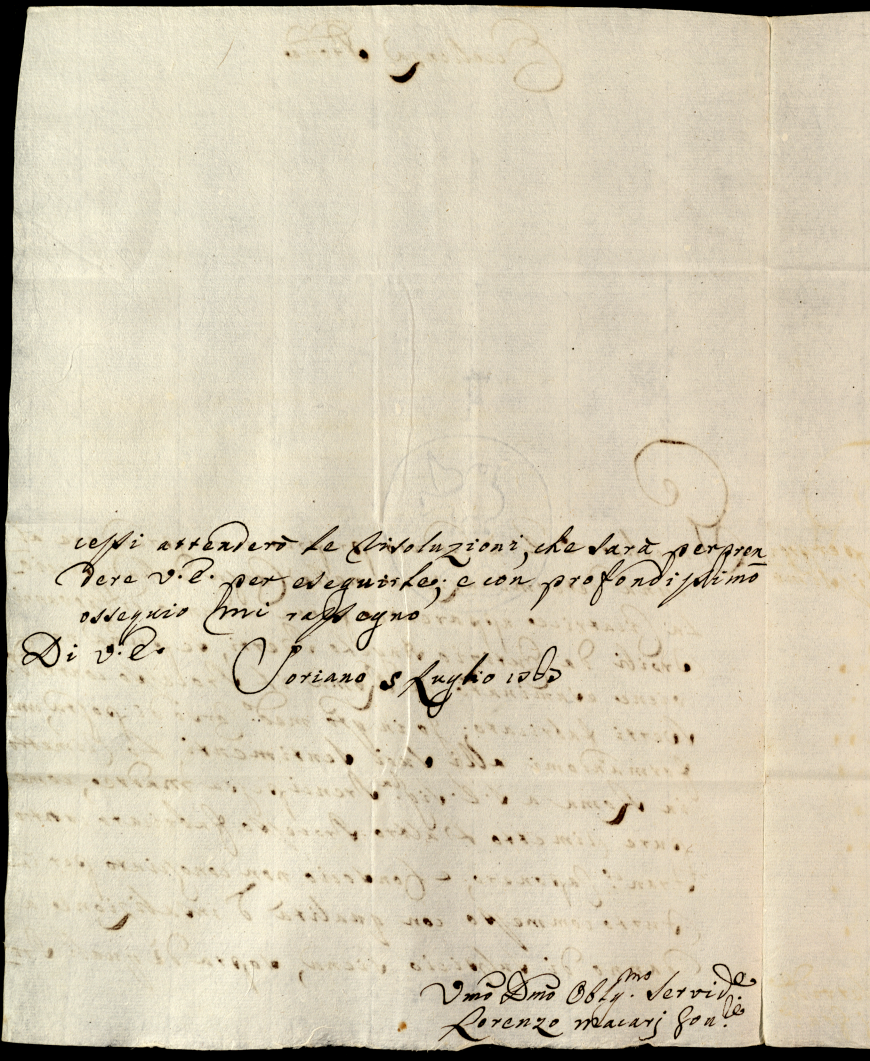 cessi attenderò le risoluzioni, che sarà per pren
dere V. E. per eseguirle; e con profondissimo
ossequio mi rassegno
Di V. E.
Soriano 5 Luglio
Vmo Dmo Oblg.mo Servid.e
Lorenzo Macarj Gou.le